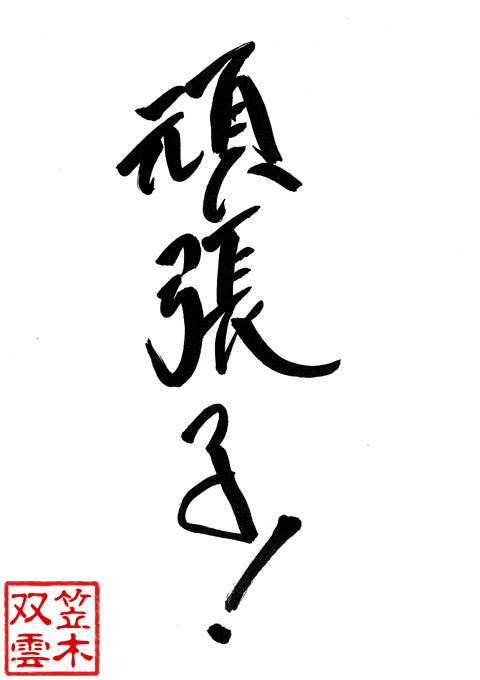 頑張子!
笠木
双雲